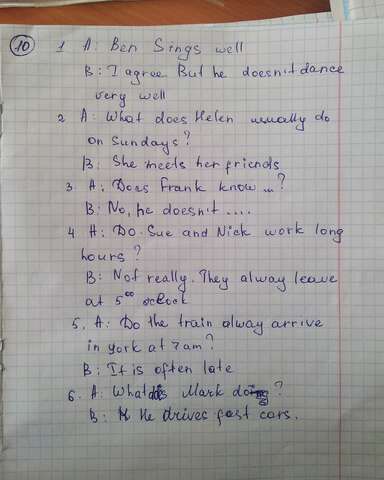 10 1 A: Ben Sings well
B: I agree But he doesn't dance
very well
2 A: What does Helen usually do
on Sundays?
B: She meets her friends
3 A: Does Frank know ...?
B: No, he doesn't ....
4 A: Do Sue and Nick work long
hours?
B: Not really. They alway leave
at 5⁰⁰ oclock
5. A: Do the train alway arrive
in york at 7am?
B: It is often late
6. A: What Mark ?
B: He drives fast cars.